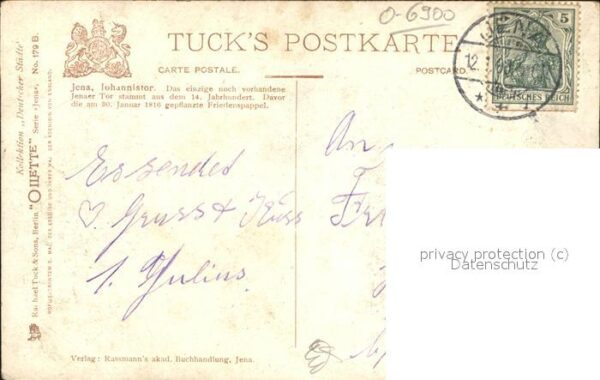 O-6900
TUCK'S POSTKARTE
CARTE POSTALE.
POSTCARD
JENA
5
DEUTSCHES REICH
Jena, Iohannistor. Das einzige noch vorhandene
Jenaer Tor stammt aus dem 14. Jahrhundert. Davor
die am 20. Januar 1816 gepflanzte Friedenspappel.
Kollektion „Deutscher Städte"
Serie »Jena«, No. 179 B.
Raphael Tuck & Sons, Berlin "OILETTE"
Essendet
Gruss & Kuss
Julius
An
privacy protection (c)
Datenschutz
Verlag: Rassmann's akad. Buchhandlung, Jena.